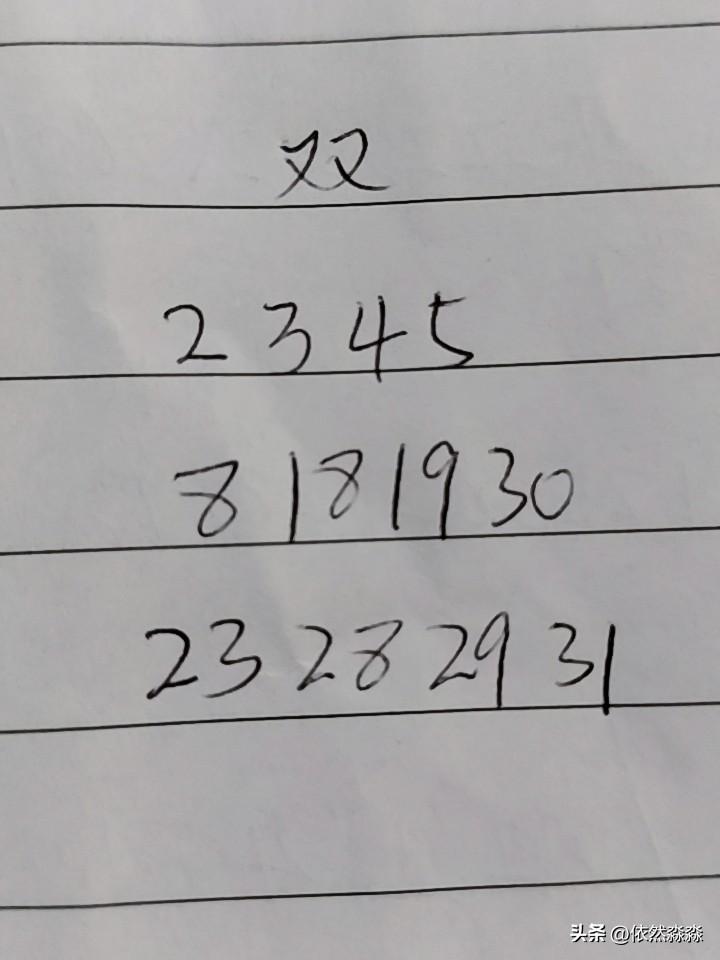 双
2 3 4 5
8 18 19 30
23 28 29 31
头条 @依然淼淼